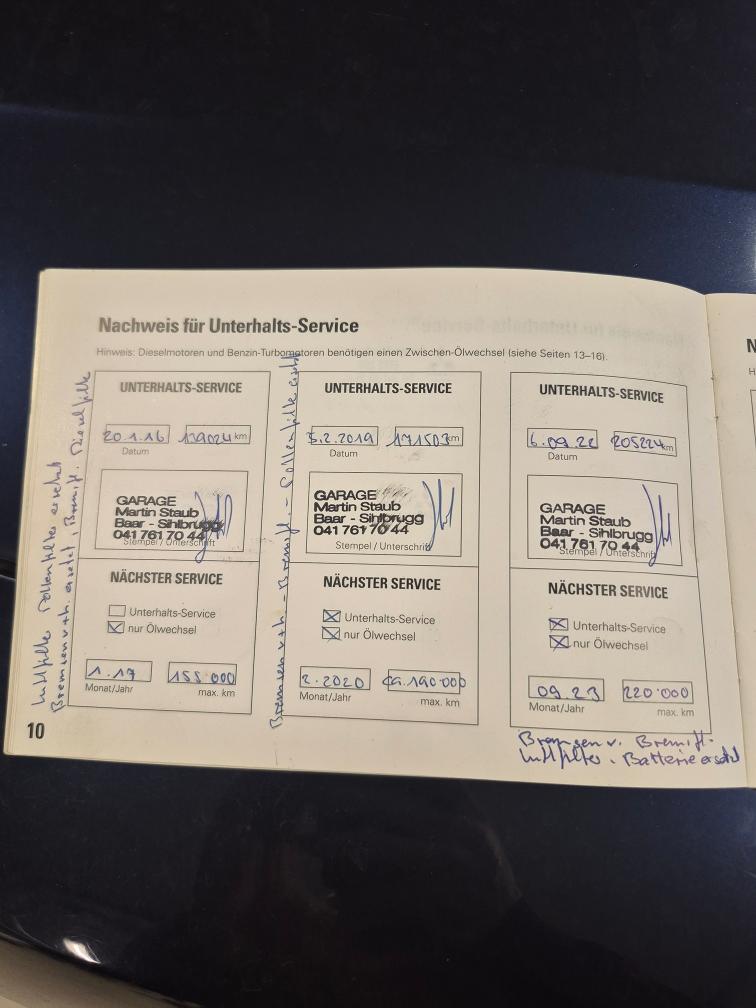 Nachweis für Unterhalts-Service
Hinweis: Dieselmotoren und Benzin-Turbomotoren benötigen einen Zwischen-Ölwechsel (siehe Seiten 13–16).
UNTERHALTS-SERVICE
20.1.16 139024 km
Datum
GARAGE
Martin Staub
Baar - Sihlbrugg
041 761 70 44
Stempel / Unterschrift
NÄCHSTER SERVICE
Unterhalts-Service
nur Ölwechsel
1.17 155.000
Monat/Jahr max. km
Luftfilter Pollenfilter ersetzt
Bremsen v+h. ersetzt, Bremsfl. Dieselfilter
UNTERHALTS-SERVICE
5.2.2019 171503 km
Datum
GARAGE
Martin Staub
Baar - Sihlbrugg
041 761 70 44
Stempel / Unterschrift
NÄCHSTER SERVICE
Unterhalts-Service
nur Ölwechsel
2.2020 ca.190.000
Monat/Jahr max. km
Bremsen v+h. - Bremsfl. - Pollenfilter ersetzt
UNTERHALTS-SERVICE
6.09.22 205224 km
Datum
GARAGE
Martin Staub
Baar - Sihlbrugg
041 761 70 44
Stempel / Unterschrift
NÄCHSTER SERVICE
Unterhalts-Service
nur Ölwechsel
09.23 220.000
Monat/Jahr max. km
Bremsen v. Bremsfl.
Luftfilter. Batterie ersetzt
10
N
H